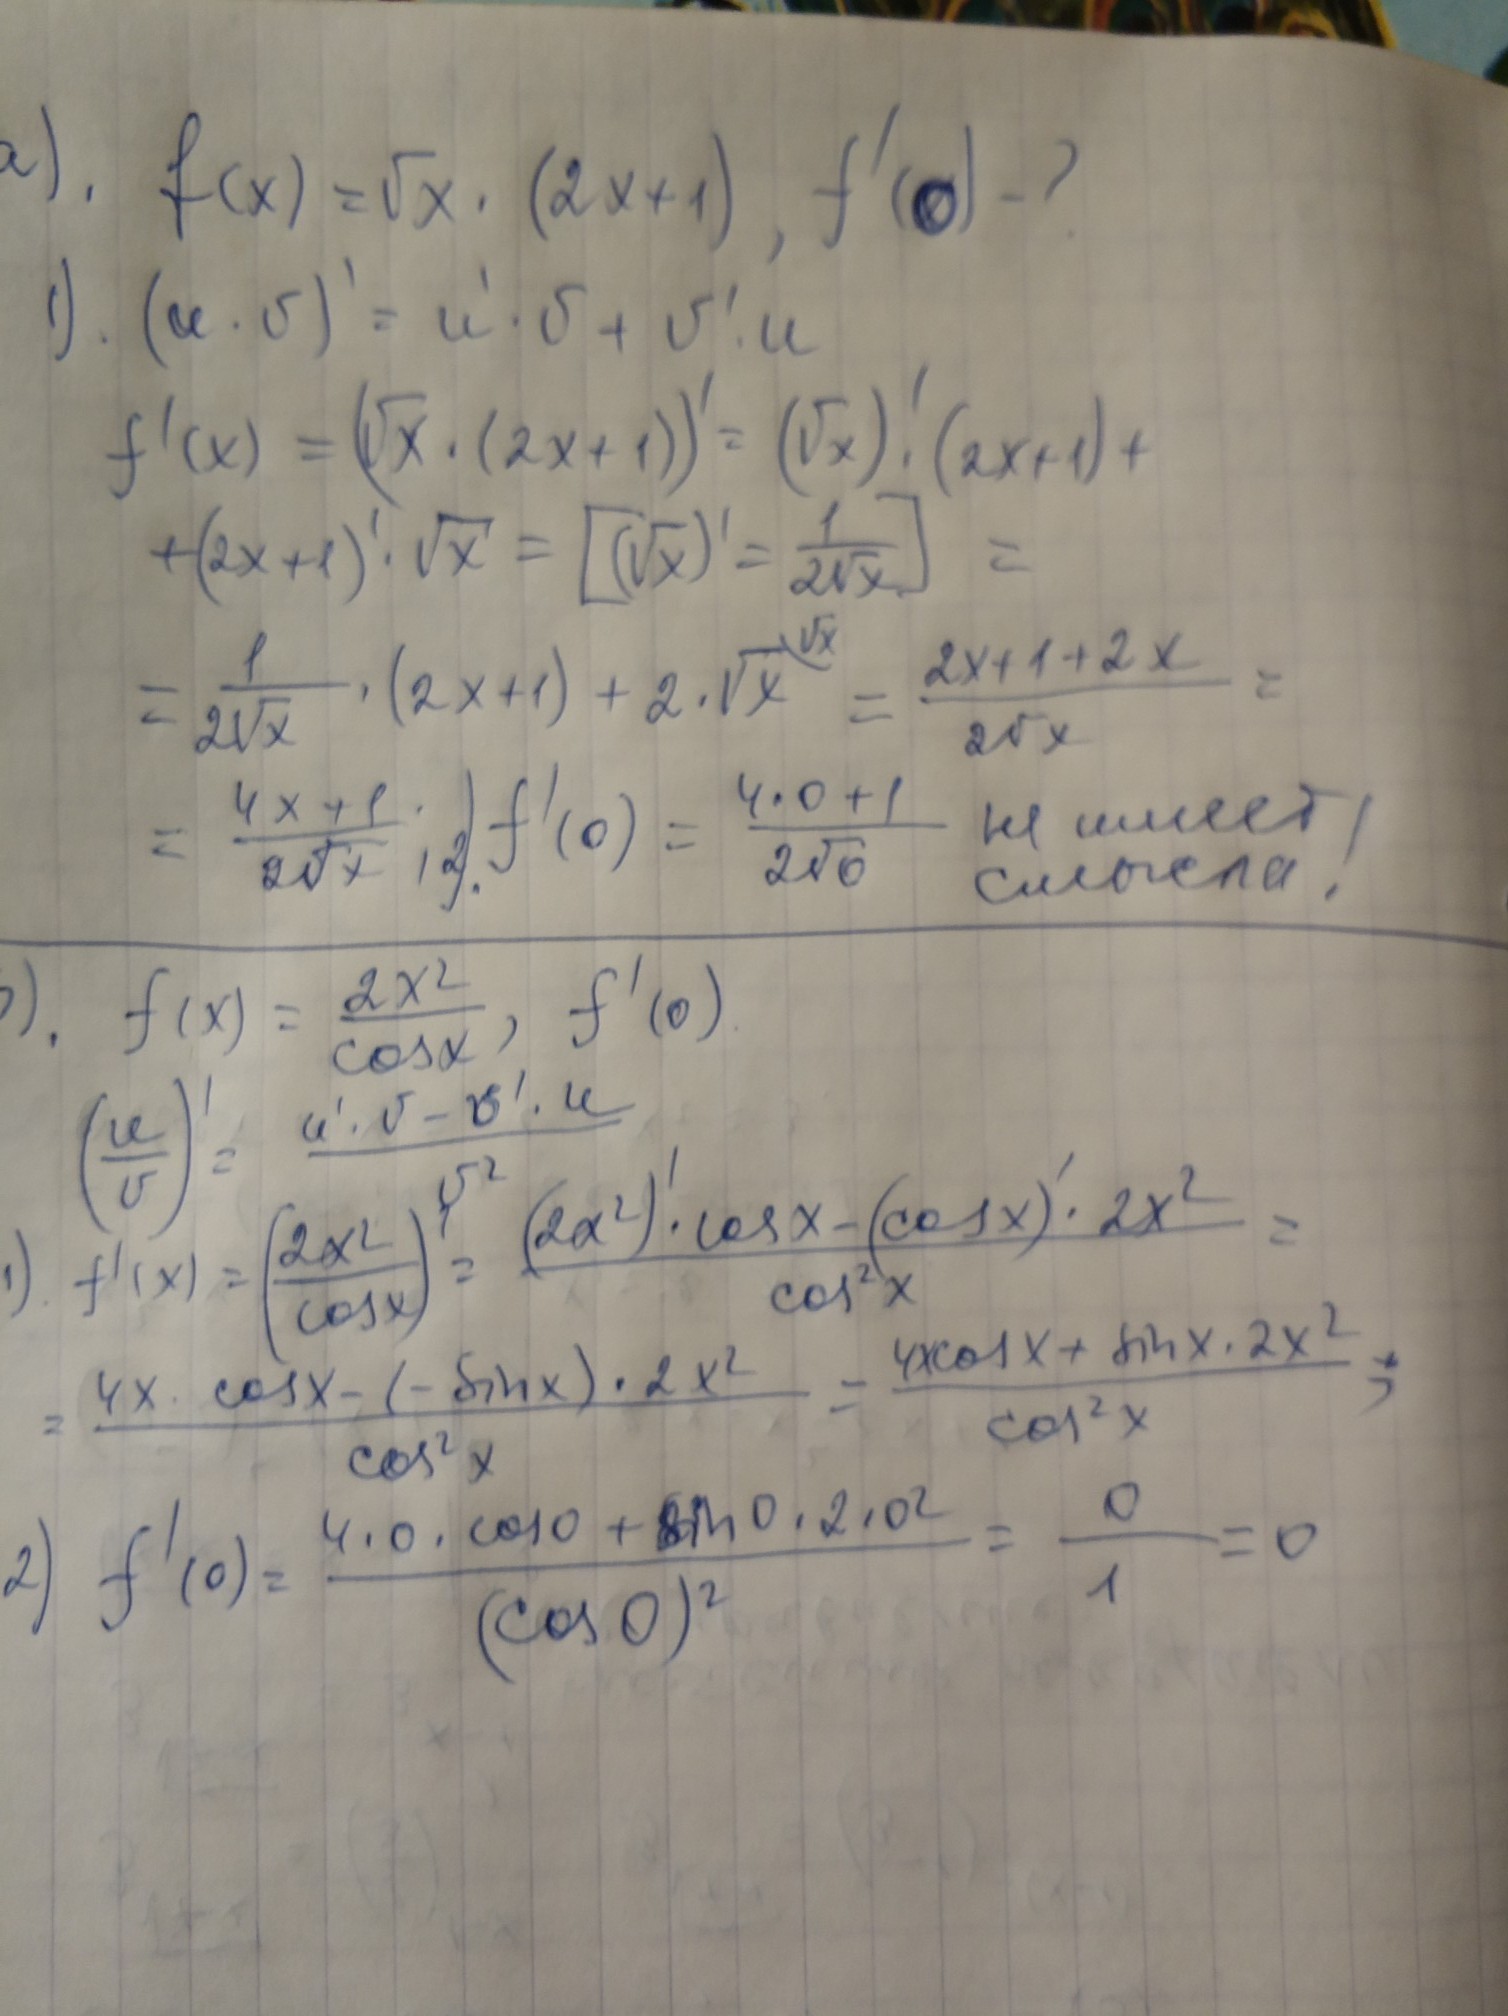 а). f(x) = √x · (2x+1), f'(0) - ?
1). (u · v)' = u' · v + v' · u
f'(x) = (√x · (2x+1))' = (√x)' · (2x+1) +
+ (2x+1)' · √x = [(√x)' = 1/(2√x)] =
= 1/(2√x) · (2x+1) + 2 · √x^(√x = (2x+1+2x)/(2√x) =
= (4x+1)/(2√x) ; 2). f'(0) = (4·0+1)/(2√0) не имеет смысла!
). f(x) = 2x²/cosx, f'(0).
(u/v)' = (u' · v - v' · u)/v²
1). f'(x) = (2x²/cosx)' = ((2x²)' · cosx - (cosx)' · 2x²)/cos²x =
= (4x · cosx - (-sinx) · 2x²)/cos²x = (4xcosx + sinx · 2x²)/cos²x ;
2) f'(0) = (4·0·cos0 + sin0·2·0²)/(cos0)² = 0/1 = 0